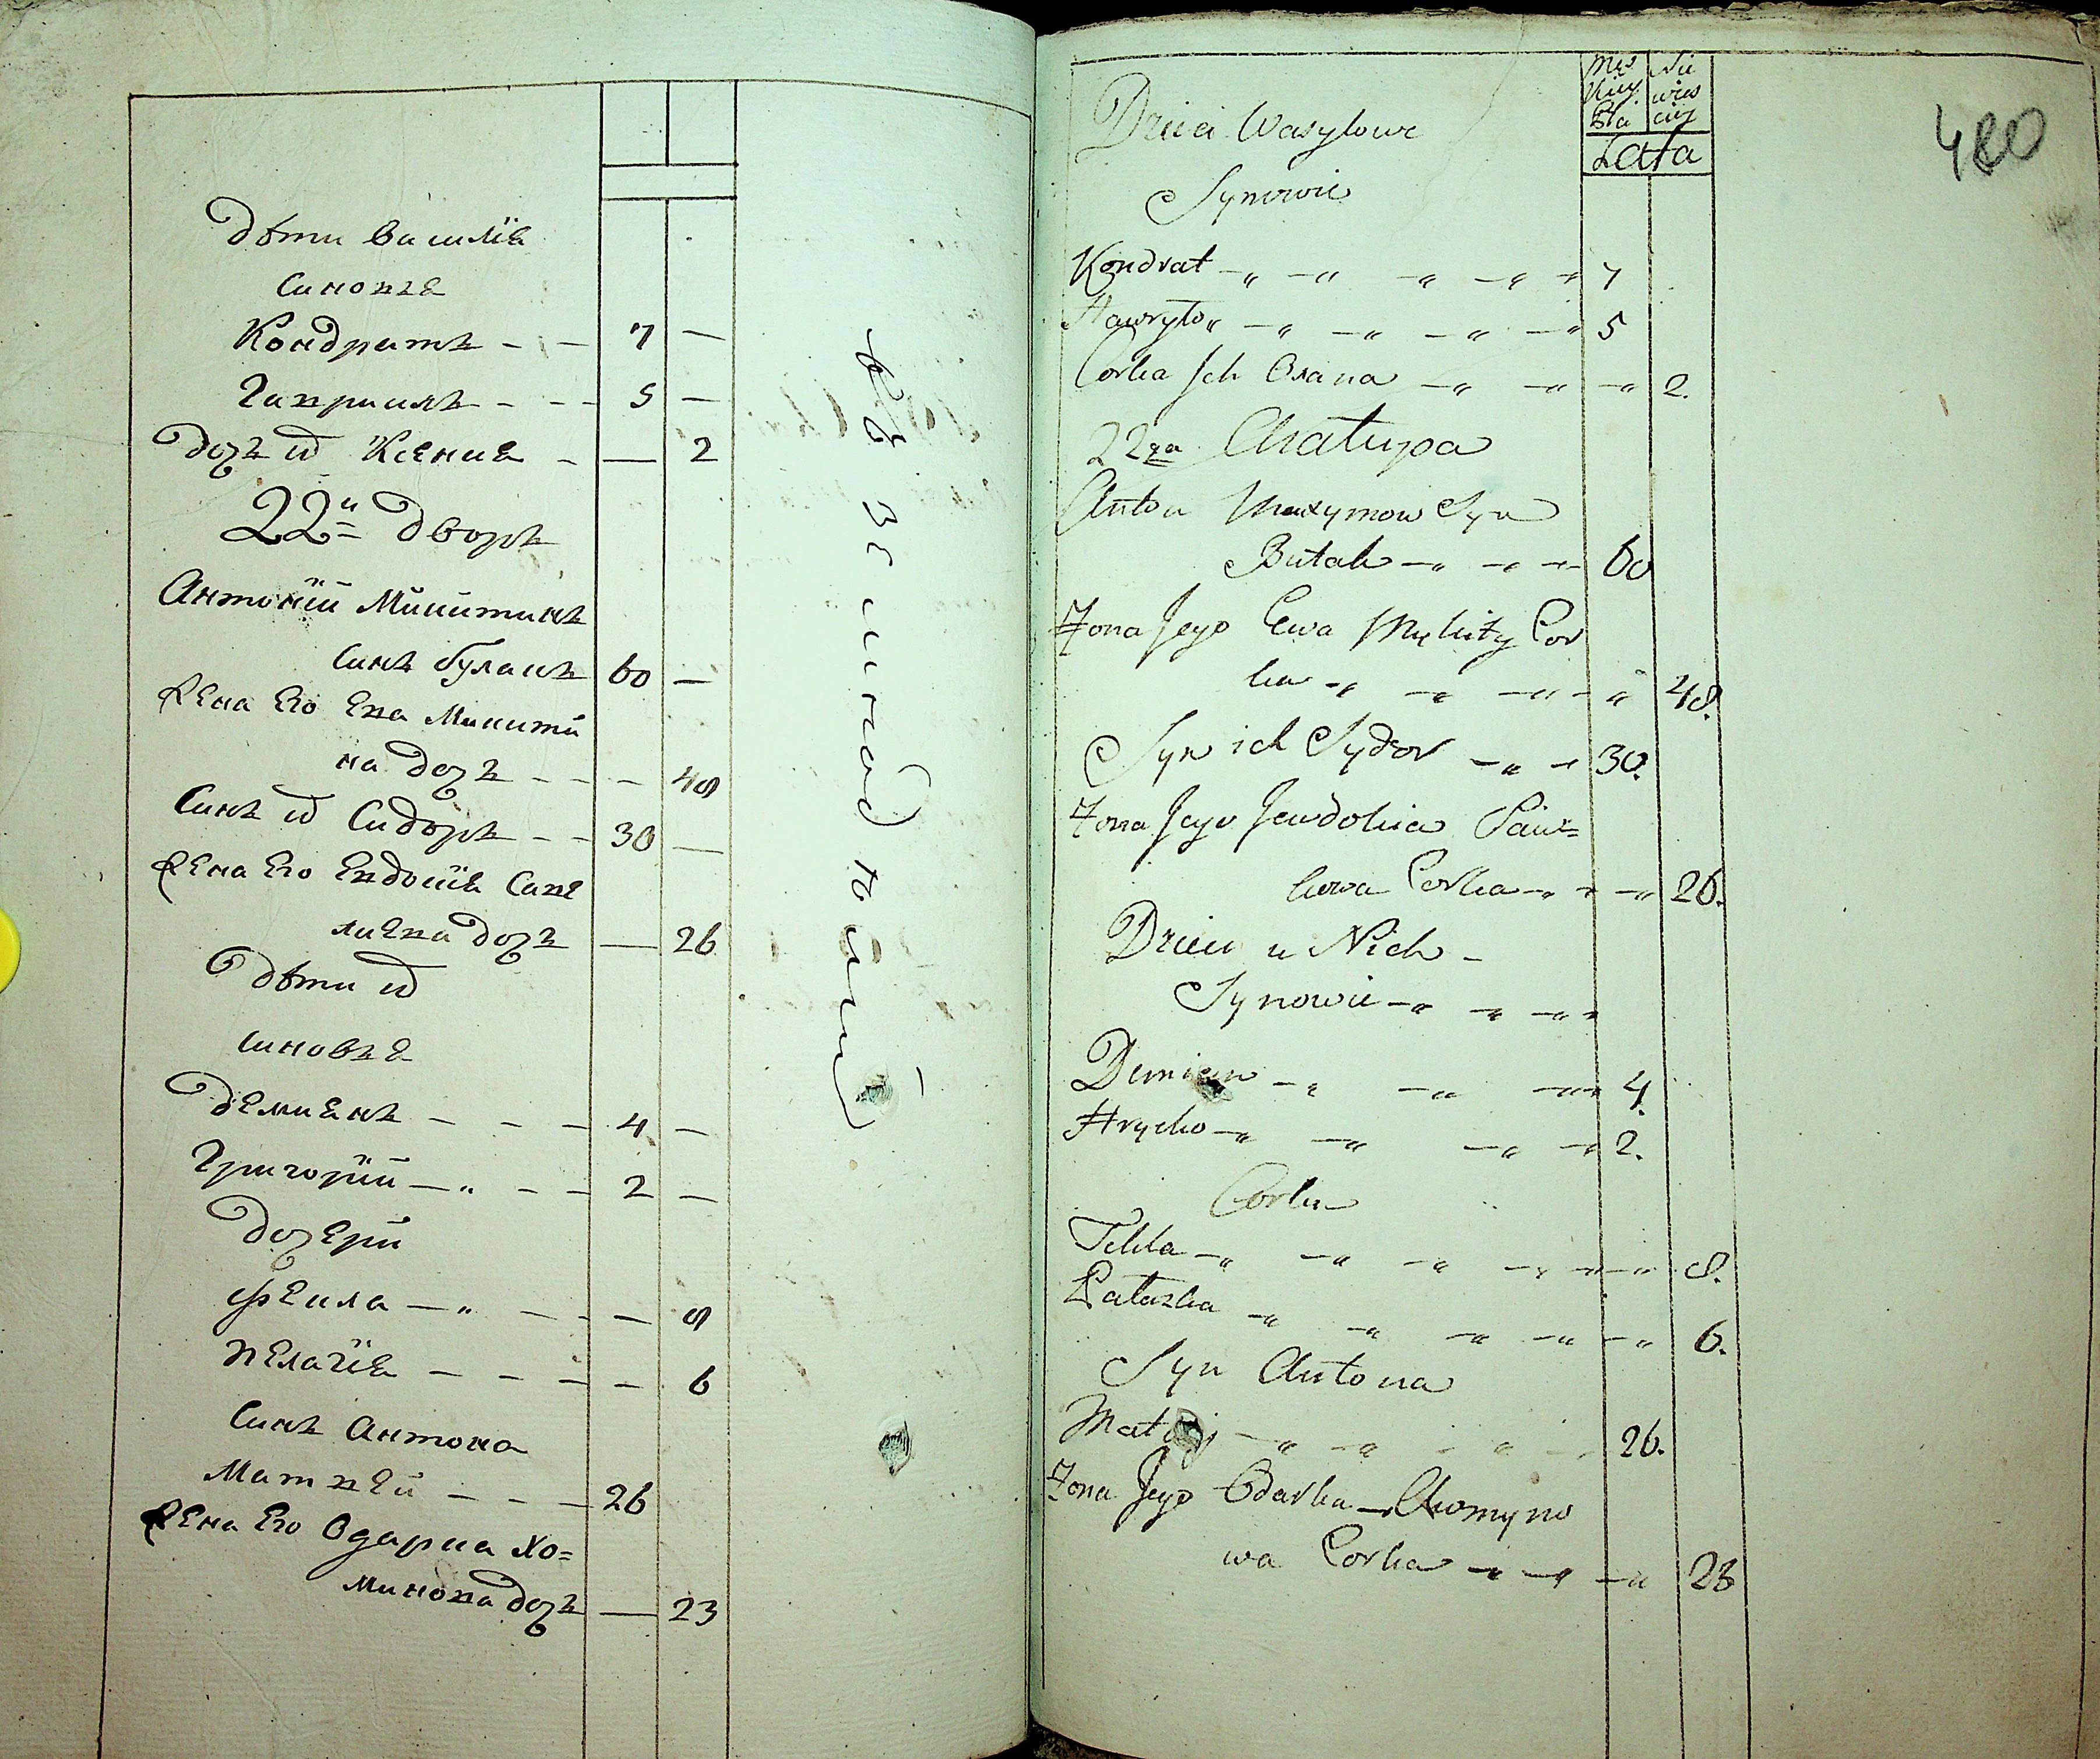 Дѣти василія
Синовья
Кондратъ - - - 7 —
Гавриилъ - - - 5 —
дочь их Ксения - — 2
22й дворъ
Антоній Микитинъ
Синъ булакъ 60 —
Жена Его Ева Микити
на дочь - - - 48
Синъ их Сидоръ - - 30 —
Жена Его Евдокія Саве
лиева дочь — 26
Дѣти их
Синовья
Демиянъ - - - 4 —
Григорій - - - 2 —
Дочери
Фекла - - - 8
Пелагія - - - - 6
Синъ Антона
Матвей - - - 26
Жена Его Одарка Хо=
минова дочь — 23
480
Męz Nie
kiey wies
Pła ciey
Lata
Dzieci Wasylowe
Synowie
Kondrat 7
Hawryło 5
Corka Ich Oxana 2.
22ga Chałupa
Anton Maxymow Syn
Butak 60
Zona Jego Ewa Mykity Cor
ka 48.
Syn ich Sydor 30.
Zona Jego Jewdokia Sawe=
lowa Corka 26.
Dzieci u Nich -
Synowie
Demian 4.
Hryćko 2.
Corki
Tekla 8.
Palazka 6.
Syn Antona
Matwij 26.
Zona Jego Odarka Chomyno
wa Corka 23